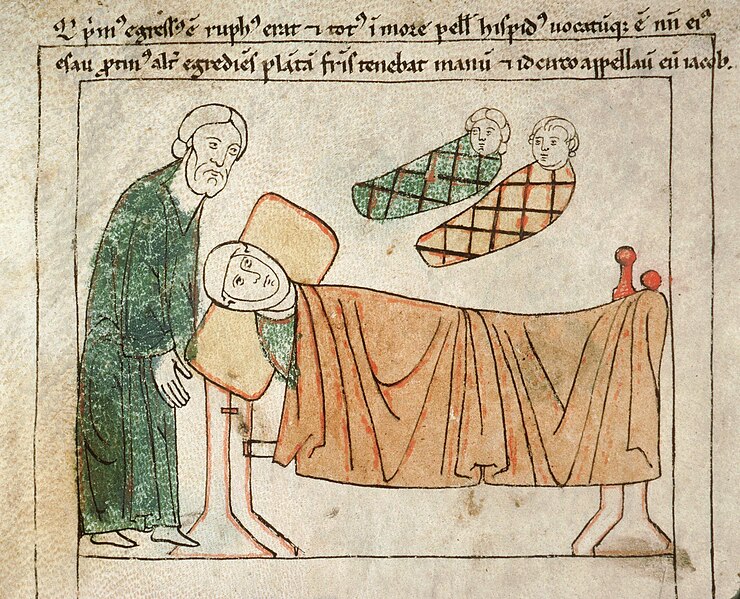 Q' p̄m᾽ egress᾽ ē ruph᾽ erat ⁊ tot᾽ ī more pell̄ hispid᾽ uocatūq; ē nn̄ ei᾽
esau ꝓtin᾽ alt᾽ egrediēs plātā fr̄is tenebat manū ⁊ idcirco appellauī eū iacob.